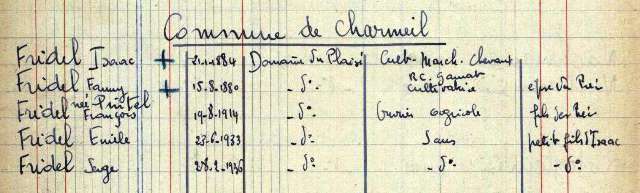 Commune de Charmeil
Fridel Isaac + 21.1.1884 Domaine du Plaisir Cult. March. Chevaux
R.C. Gannat
Fridel Fanny + 15.8.1880 - d° cultivatrice épse du Pré
née Pintel
Fridel François 19-8-1914 - d° Ouvrier agricole fils des Pré
Fridel Emile 23-6-1933 - d° Sans petit fils d'Isaac
Fridel Serge 28.2.1936 - d° - d° - d°